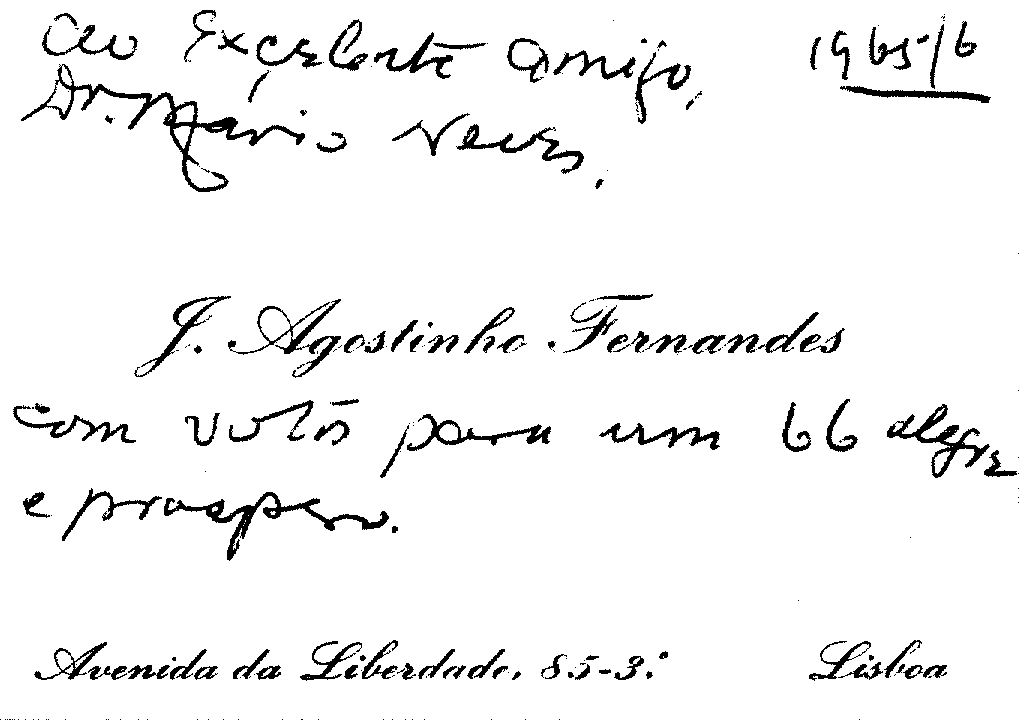 Ao Excelente Amigo, 1965/6
Dr. Mário Neves.
J. Agostinho Fernandes
com votos para um 66 alegre
e prospero.
Avenida da Liberdade, 85-3.º Lisboa